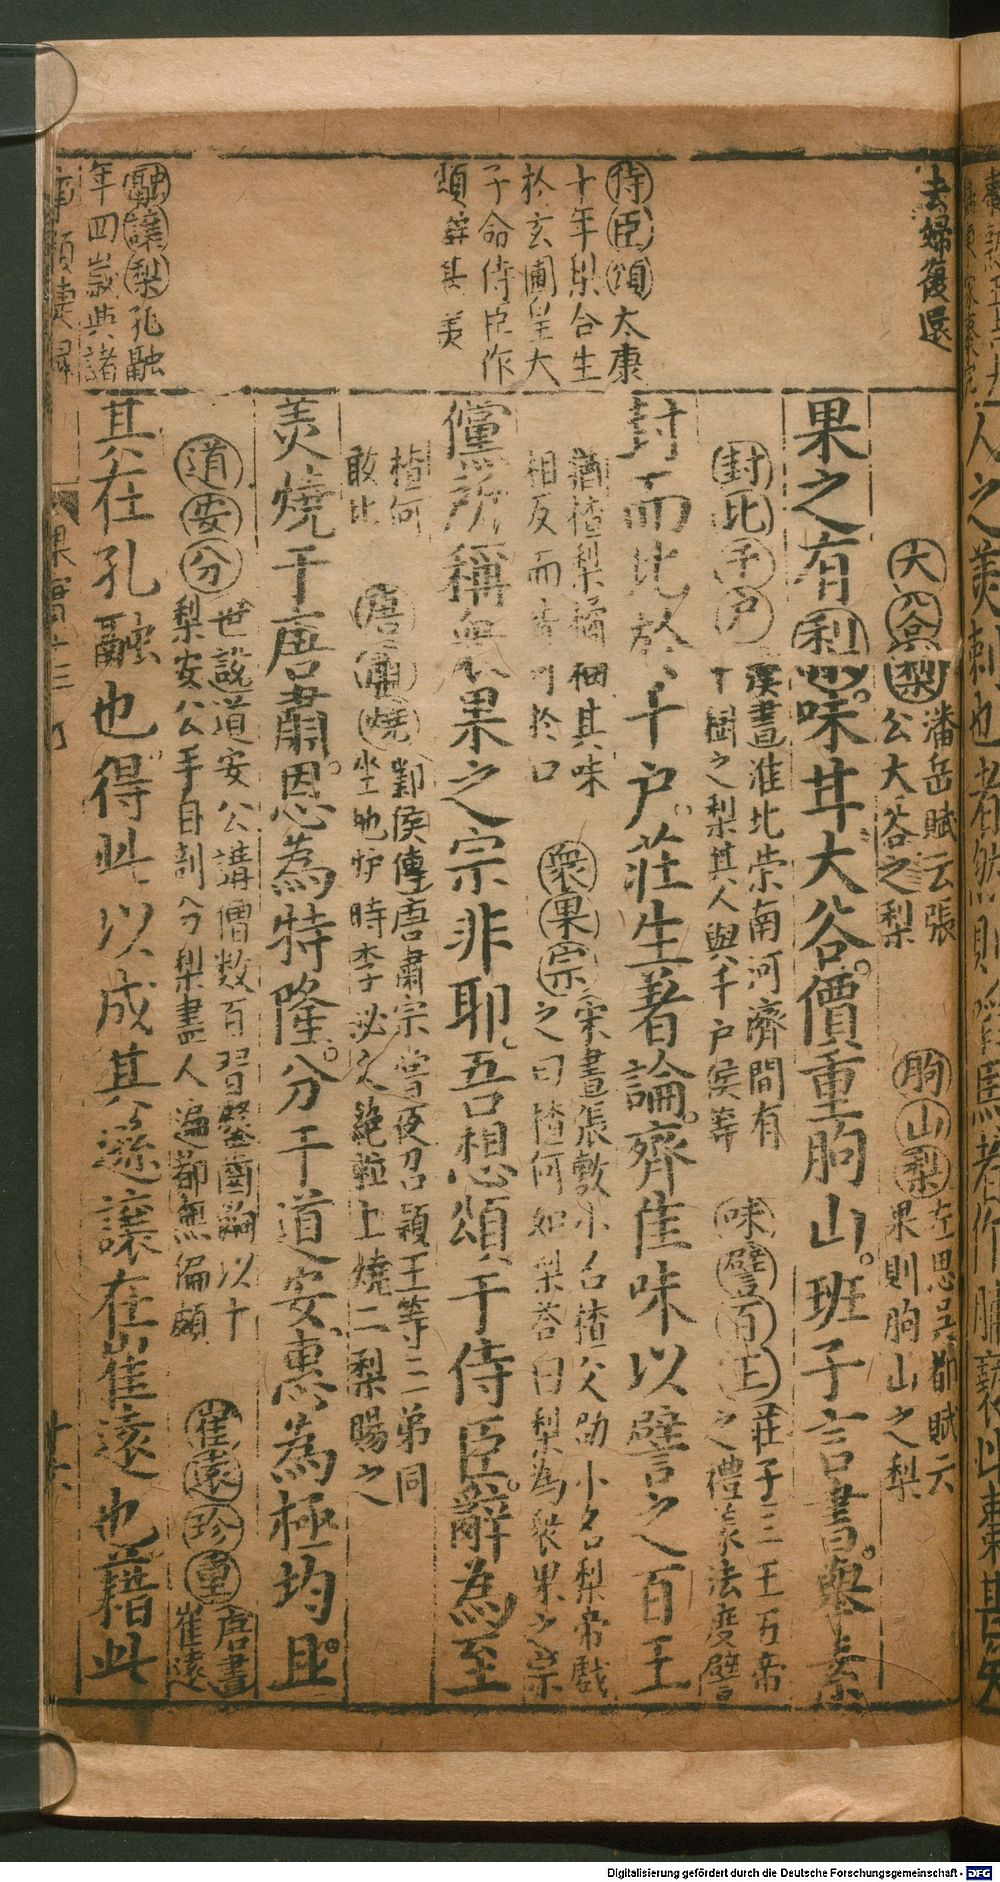 去婦復還
侍臣頌太康
十年梨合生
於玄圃皇大
子命侍臣作
頌
其美
融讓梨孔融
年四歲與諸
大谷梨潘岳賦云張
公大谷之梨
朐山梨左思吳都賦云
果則朐山之梨
果之有梨也味甘大谷價重朐山班子言書與素
封比千戶漢書淮北常南河濟間有
千樹之梨其人與千戶侯等
味譬百王莊子三王五帝
之禮義法度譬
封而比於千戶莊生著論齊佳味以譬之百王
猶楂梨橘柚其味
相反而皆可於口
衆果宗宋書張敷小名楂父劭小名梨帝戲
之曰楂何如梨答曰梨為衆果之宗
儻所稱衆果之宗非耶吾想頌于侍臣辭為至
楂何
敢比
唐肅燒鄴侯傳唐肅宗嘗夜召潁王等三弟同
坐地爐時李泌久絕粒上燒二梨賜之
美燒于唐肅恩為特隆分于道安惠為極均且
道安分世說道安公講僧数百習鑿齒餉以十
梨安公手自剖分梨盡人遍都無偏頗
崔遠珍重唐書
崔遠
其在孔融也得此以成其遜讓在崔遠也藉此
果實十三
十六
Digitalisierung gefördert durch die Deutsche Forschungsgemeinschaft - DFG